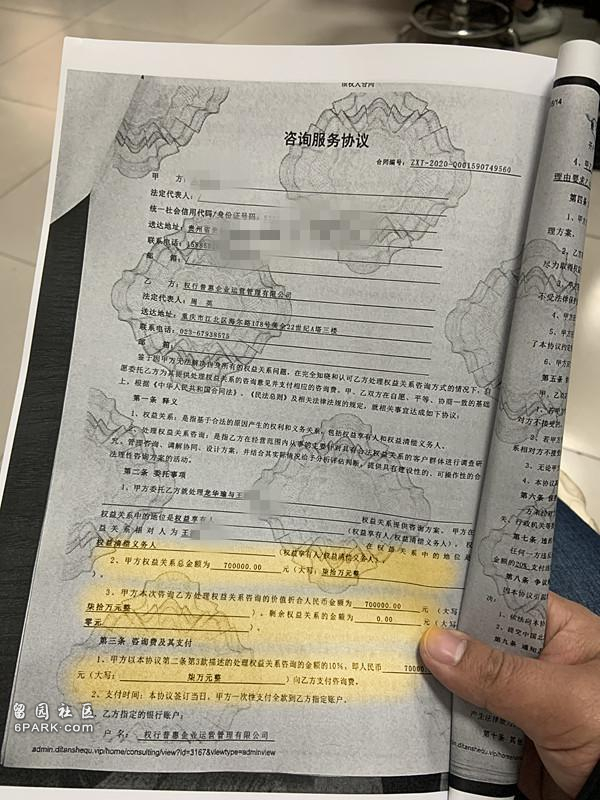 咨询服务协议
合同编号: ZXT-2020-Q001590749560
甲 方:
法定代表人:
统一社会信用代码/身份证号码:
送达地址: 贵州省
联系电话: 1588
邮 箱:
乙 方: 权行普惠企业运营管理有限公司
法定代表人: 周 英
送达地址: 重庆市江北区海尔路178号黄金22世纪A塔三楼
联系电话: 023-67938575
邮 箱:
鉴于因甲方无法解决自身所有的权益关系问题, 在完全知晓和认可乙方处理权益关系咨询方式的情况下, 自
愿委托乙方为其提供处理权益关系的咨询意见并支付相应的咨询费。甲、乙双方在自愿、平等、协商一致的基础
上, 根据《中华人民共和国合同法》、《民法总则》及相关法律法规的规定, 就相关事宜达成如下协议:
第一条 释义
1、权益关系: 是指基于合法的原因产生的权利和义务关系, 包括权益享有人和权益清偿义务人。
2、处理权益关系咨询: 是指乙方在经营范围内从事的主要针对具有合法权益关系的客户群体进行调查研
究、管理咨询、调解协同、设计方案, 并结合其实际情况给予分析评估判断, 提供具有建设性的、可操作性的合
法理性咨询方案的活动。
第二条 委托事项
1、甲方委托乙方就处理龙华瑜与王
权益关系提供咨询方案。甲方在
权益关系中的地位是权益享有人
(权益享有人/权益清偿义务人)。权
益关系相对人为王
在权益关系中的地位是
权益清偿义务人
(权益享有人/权益清偿义务人)。
2、甲方权益关系总金额为 700000.00 元 (大写: 柒拾万元整
)。
3、甲方本次咨询乙方处理权益关系咨询的价值折合人民币金额为 700000.00 元 (大写
柒拾万元整 )。剩余权益关系的金额为 0.00 元 (大写
零元 )。
第三条 咨询费及其支付
1、甲方以本协议第二条第3款描述的处理权益关系咨询的金额的10%, 即人民币 7000
元 (大写: 柒万元整 ) 向乙方支付咨询费。
2、支付时间: 本协议签订当日, 甲方一次性支付全款到乙方指定账户。
乙方指定的银行账户:
户 名: 权行普惠企业运营管理有限公司
admin.ditanshequ.vip/home/consulting/view?id=3167&viewtype=adminview
5/14
第四条
理方案。
尽力取得权
不受法律保
了本协议约定
第五条
对方不接受
系相对方不接
第六条 保
关、行政机关等
第七条 违
任何一方违反
金额的20%支付违
第八条 争议
第九条 通知
产生法律效力
第十条 其他
留园社区
6PARK.COM